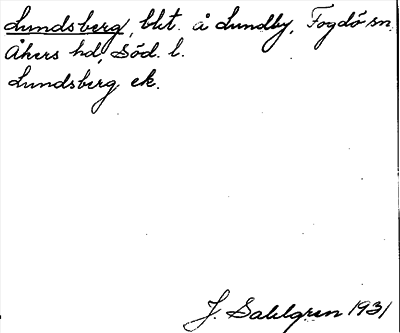 Lundsberg, bht å Lundby, Fogdö sn
Åkers hd, Söd. l.
Lundsberg ek.
J. Sahlgren 1931